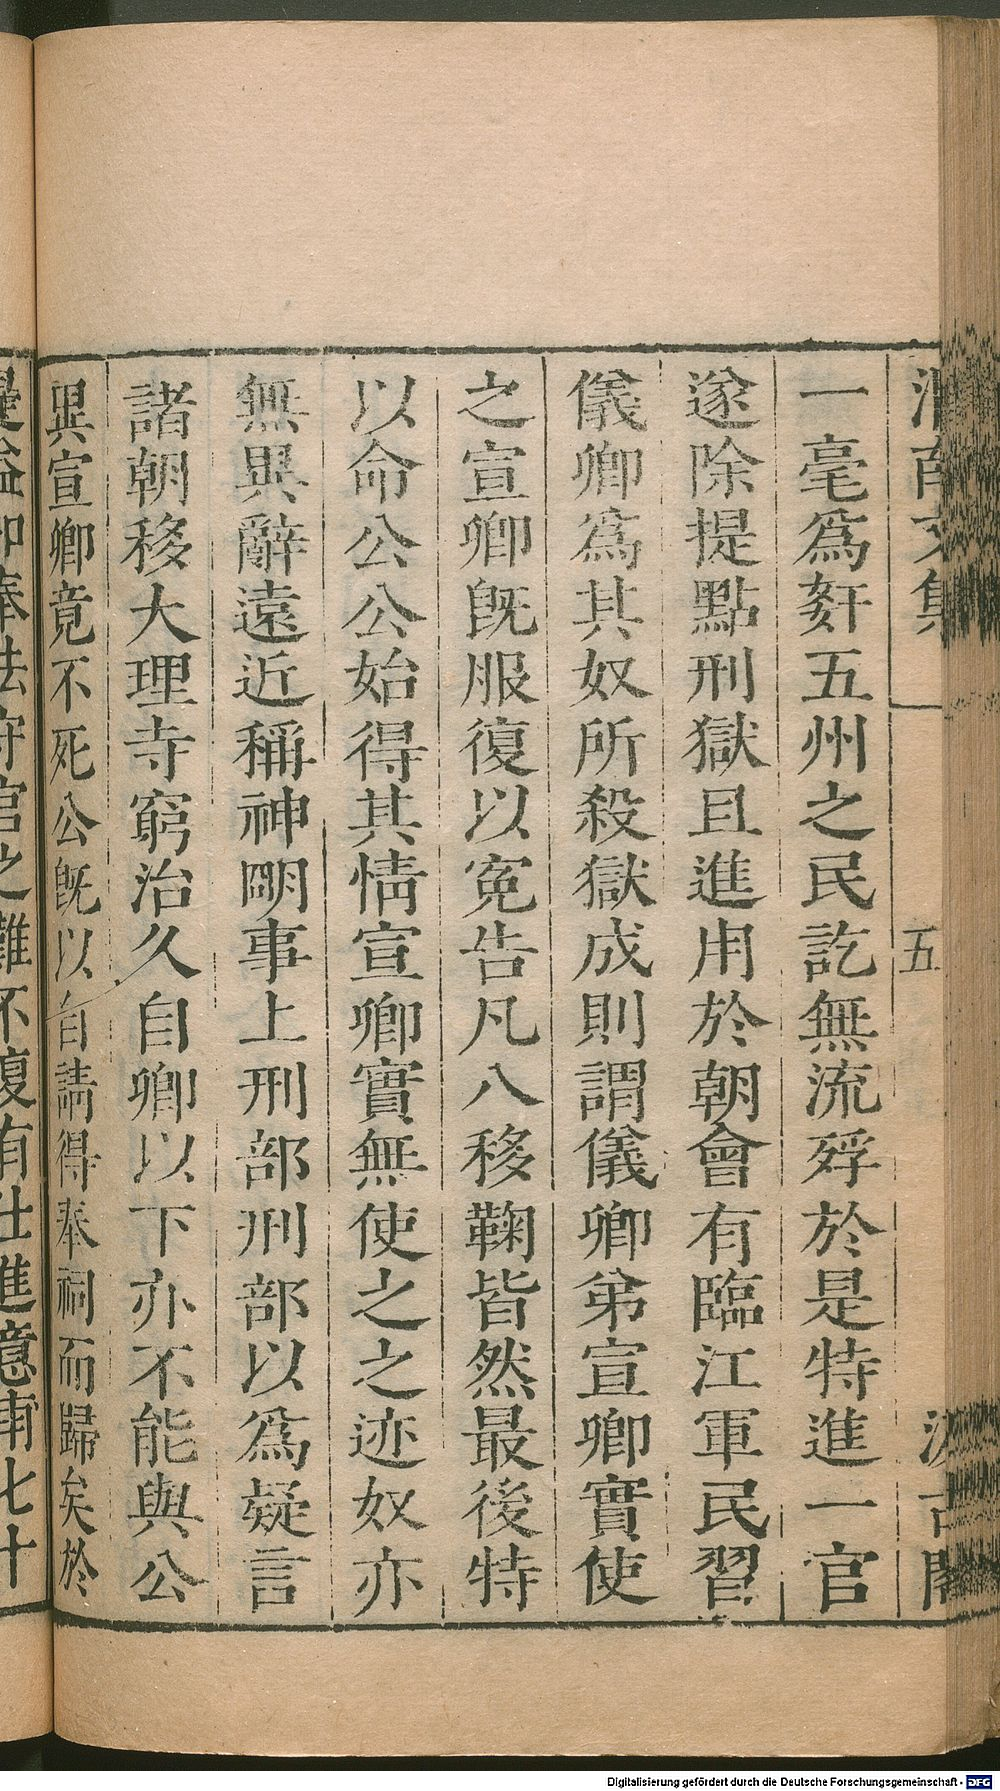 渭南文集 五 汲古閣
一毫爲姦五州之民訖無流殍於是特進一官
遂除提點刑獄且進用於朝會有臨江軍民習
儀卿爲其奴所殺獄成則謂儀卿弟宣卿實使
之宣卿旣服復以寃告凡八移鞠皆然最後特
以命公公始得其情宣卿實無使之之迹奴亦
無異辭遠近稱神明事上刑部刑部以爲疑言
諸朝移大理寺窮治久自卿以下亦不能與公
異宣卿竟不死公旣以自請得奉祠而歸矣於
是益知奉法守官之難不復有仕進意甫七十
Digitalisierung gefördert durch die Deutsche Forschungsgemeinschaft - DFG